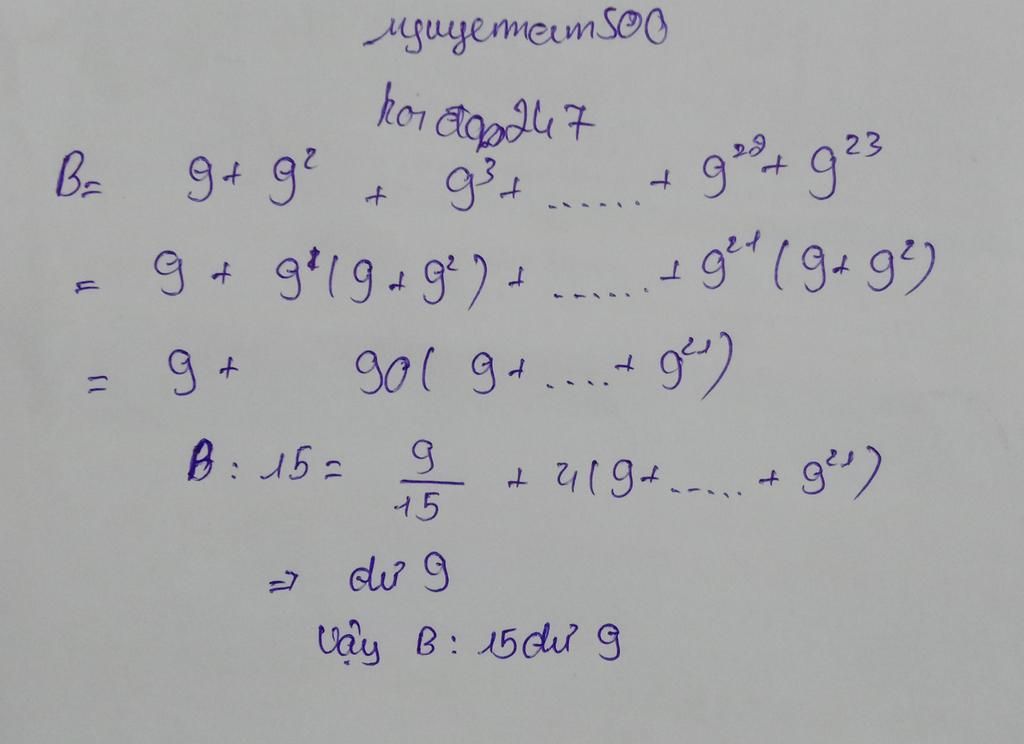 nguyetnam500
hoidap247
B = 9 + 9² + 9³ + ...... + 9²² + 9²³
= 9 + 9¹(9 + 9²) + ...... + 9²¹(9 + 9²)
= 9 + 90(9 + .... + 9²¹)
B : 15 = 9/15 + 4(9 + ..... + 9²¹)
⇒ dư 9
Vậy B : 15 dư 9